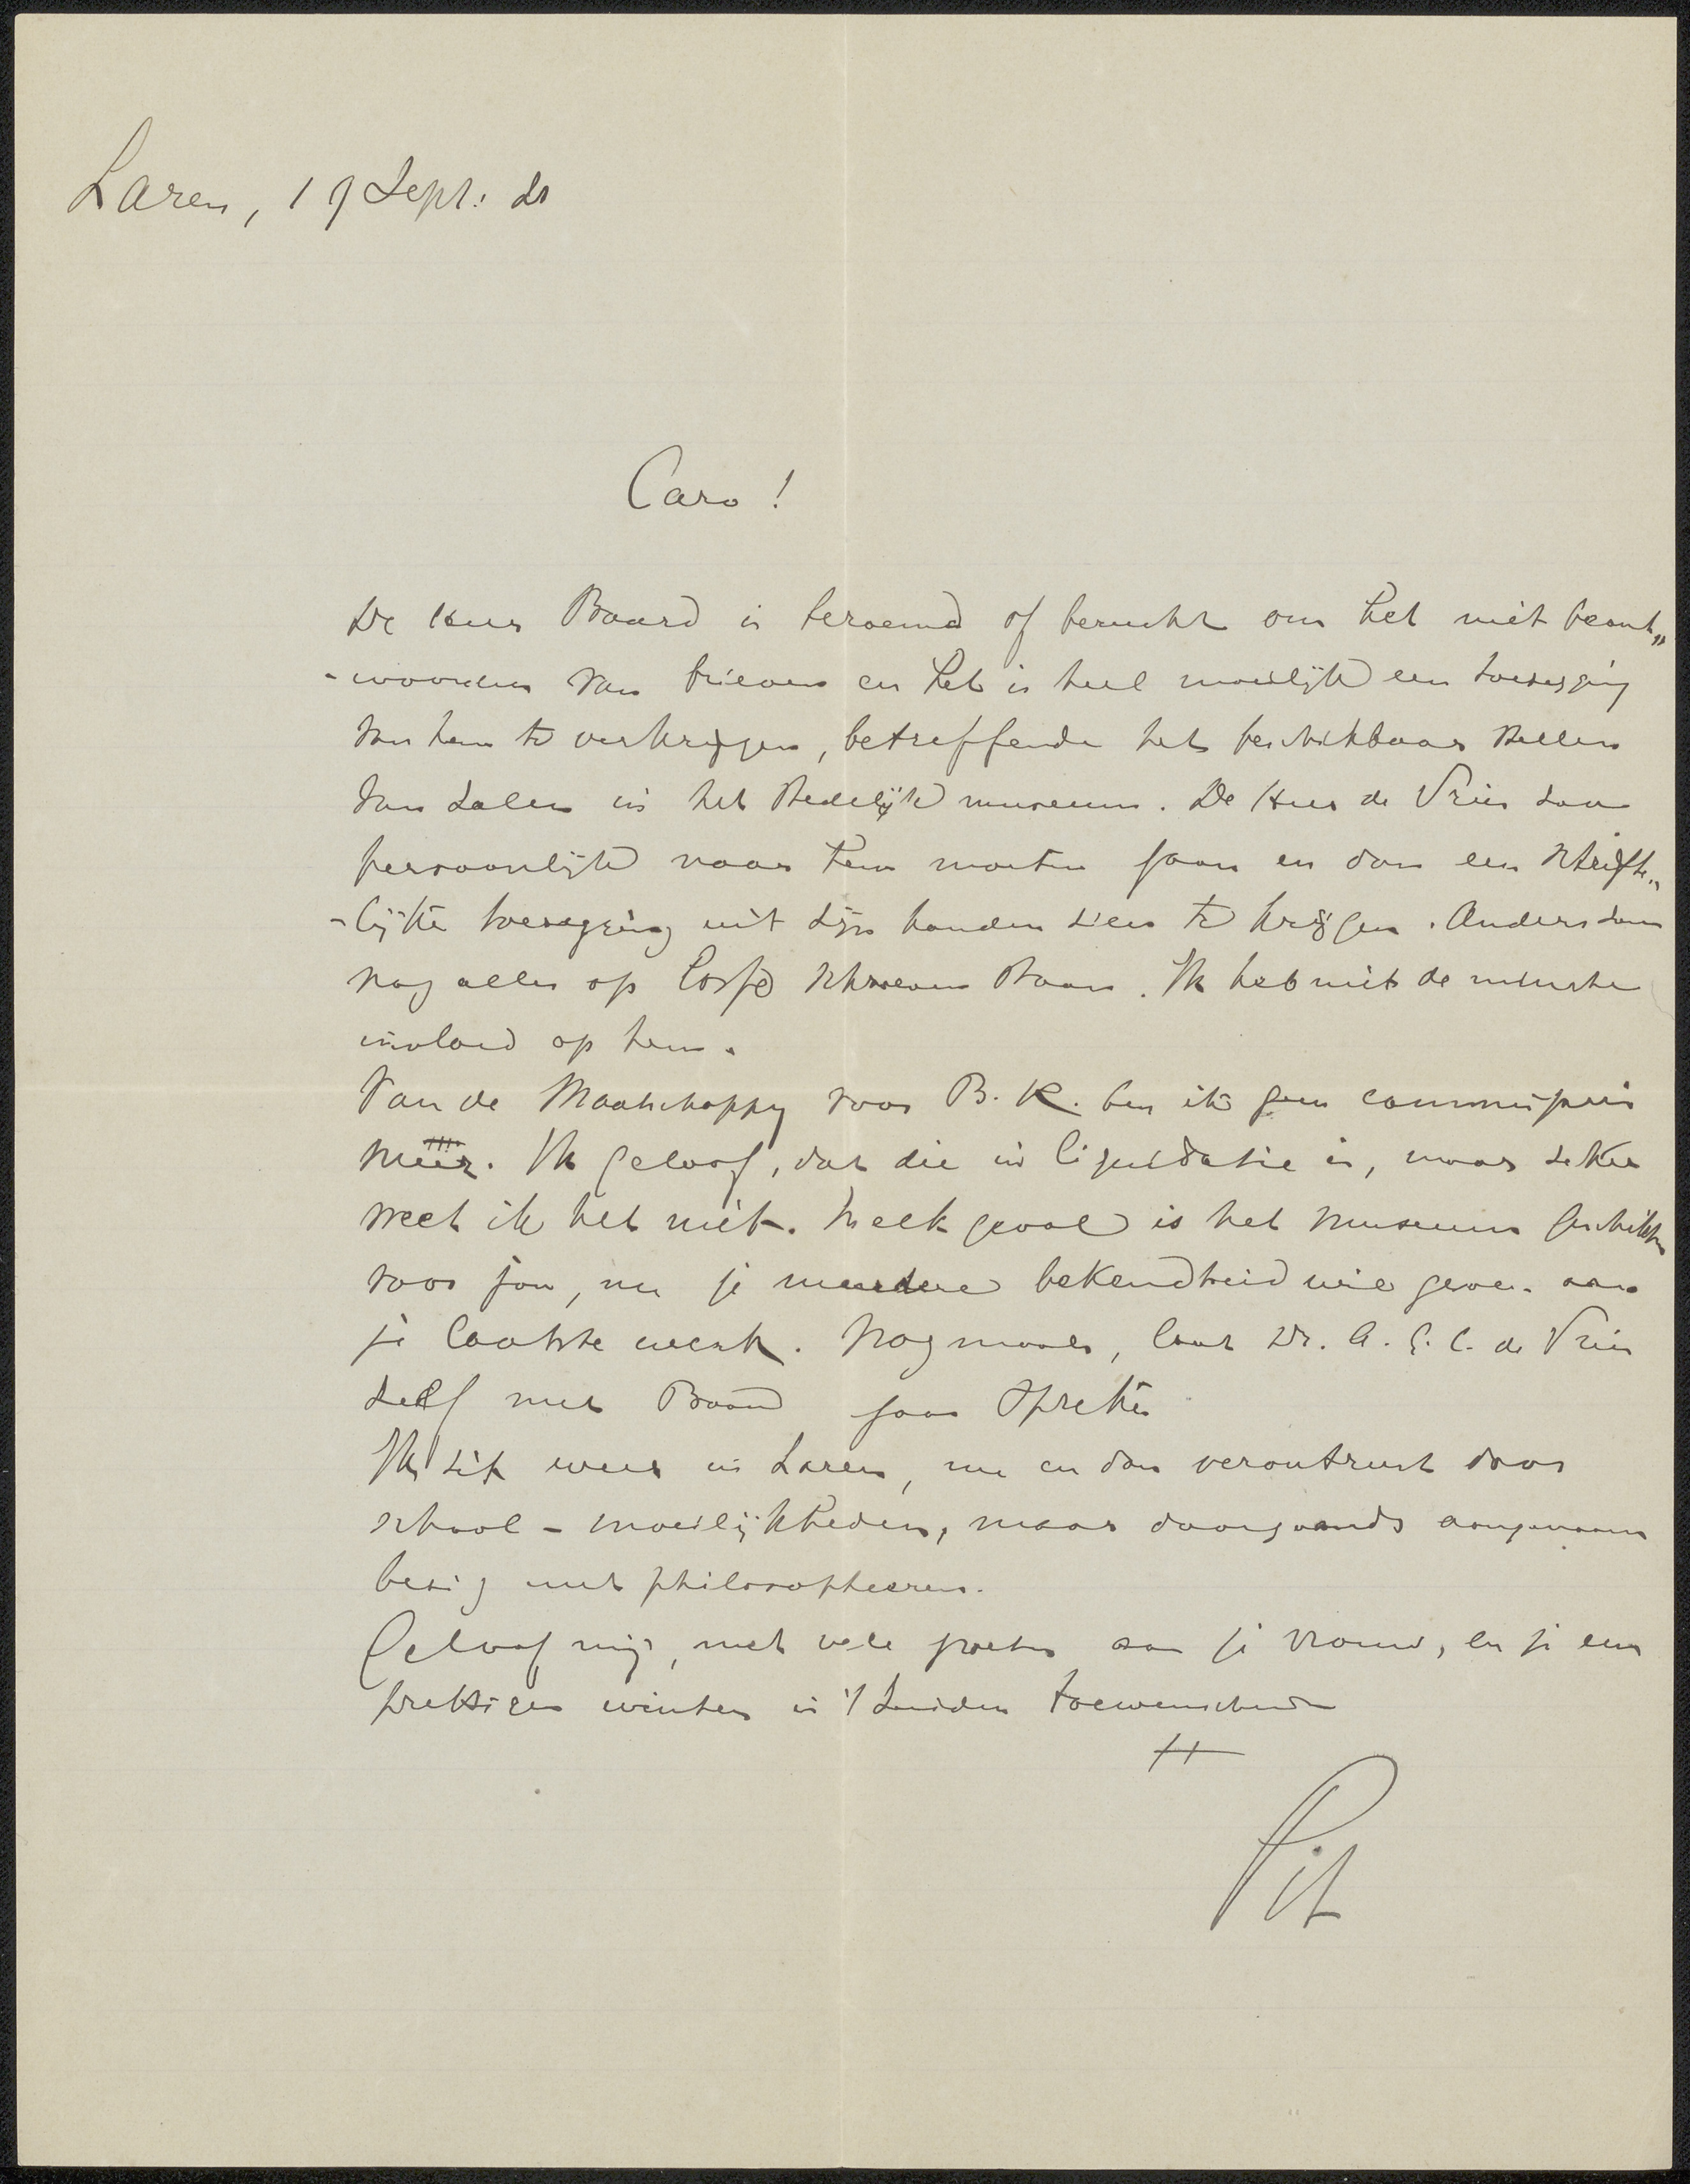 Laren, 19 Sept: 21
Caro!
De Heer Baard is beroemd of berucht om het niet beant„
-woorden van brieven en het is heel moeilijk een toezegging
van hem te verkrijgen, betreffende het beschikbaar stellen
van zalen in het Stedelijk museum. De Heer de Vries zou
persoonlijk naar hem moeten gaan en dan een schrifte„
-lijke toezegging uit zijn handen zien te krijgen. Anders zou
nog alles op losse schroeven staan. Ik heb niet de minste
invloed op hem.
Van de Maatschappy voor B.K. ben ik geen commissaris
meer. Ik geloof, dat die in liquidatie is, maar zeker
weet ik het niet. In elk geval is het museum geschikter
voor jou, nu je meerdere bekendheid wil geven aan
je laatste werk. Nogmaals, laat Dr. A. G. C. de Vries
zelf met Baard gaan spreken
Ik zit weer in Laren, nu en dan verontrust door
school-moeilijkheden, maar doorgaands aangenaam
bezig met philosopheeren.
Geloof mij, met vele groeten aan je vrouw, en je een
prettigen winter in 't Zuiden toewenschend
tt
Pit